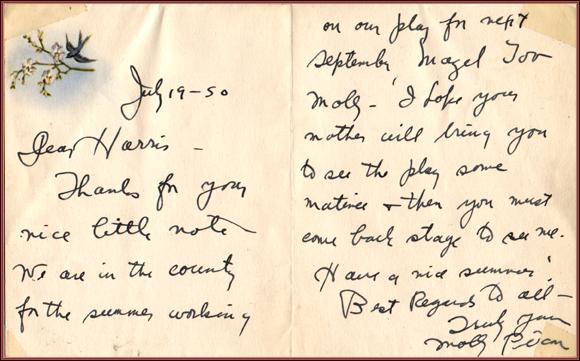 July 19-50
Dear Harris -
Thanks for your
nice little note
We are in the county
for the summer working
on our play for next
September Mazel Tov
Molly - I hope your
mother will bring you
to see the play some
matinee & then you must
come back stage to see me.
Have a nice summer!
Best Regards to all -
Truly your
Molly Picon